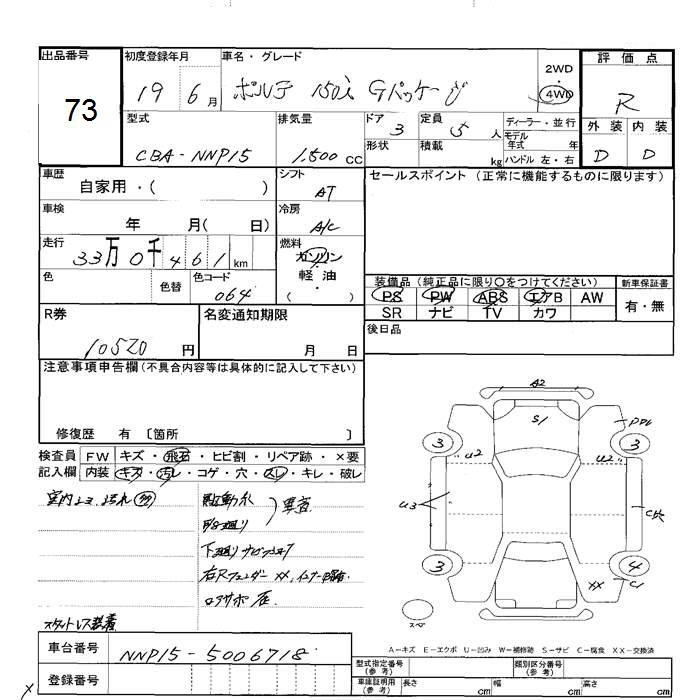 出品番号 73
初度登録年月 19 6月
車名・グレード ポルテ 150i Gパッケージ
2WD
4WD
評価点 R
外装 D 内装 D
型式 CBA-NNP15
排気量 1,500 CC
ドア 3
形状
定員 5 人
積載 kg
ディーラー・並行
モデル年式 年
ハンドル 左・右
車歴 自家用・( )
シフト AT
セールスポイント (正常に機能するものに限ります)
車検 年 月( 日)
冷房 A/C
走行 33万0千461km
燃料 ガソリン
軽油
( )
色 色替 色コード 064
装備品 (純正品に限り○をつけてください)
新車保証書
PS PW ABS エアB AW
有・無
SR ナビ TV カワ
R券 10520 円
名変通知期限 月 日
後日品
注意事項申告欄(不具合内容等は具体的に記入して下さい)
修復歴 有 〔箇所 〕
検査員記入欄
FW キズ・飛石・ヒビ割・リペア跡・×要
内装 キズ・汚レ・コゲ・穴・スレ・キレ・破レ
下廻り
右Rフェンダー XX,
スタットレス装着
A2
S1
3
3
U2
U2
U3
3
4
XX
C1
スペア
A-キズ E-エクボ U-凹み W-補修跡 S-サビ C-腐食 XX-交換済
車台番号 NNP15-5006718
登録番号
型式指定番号(参考)
類別区分番号(参考)
車庫証明用(参考) 長さ cm 幅 cm 高さ cm